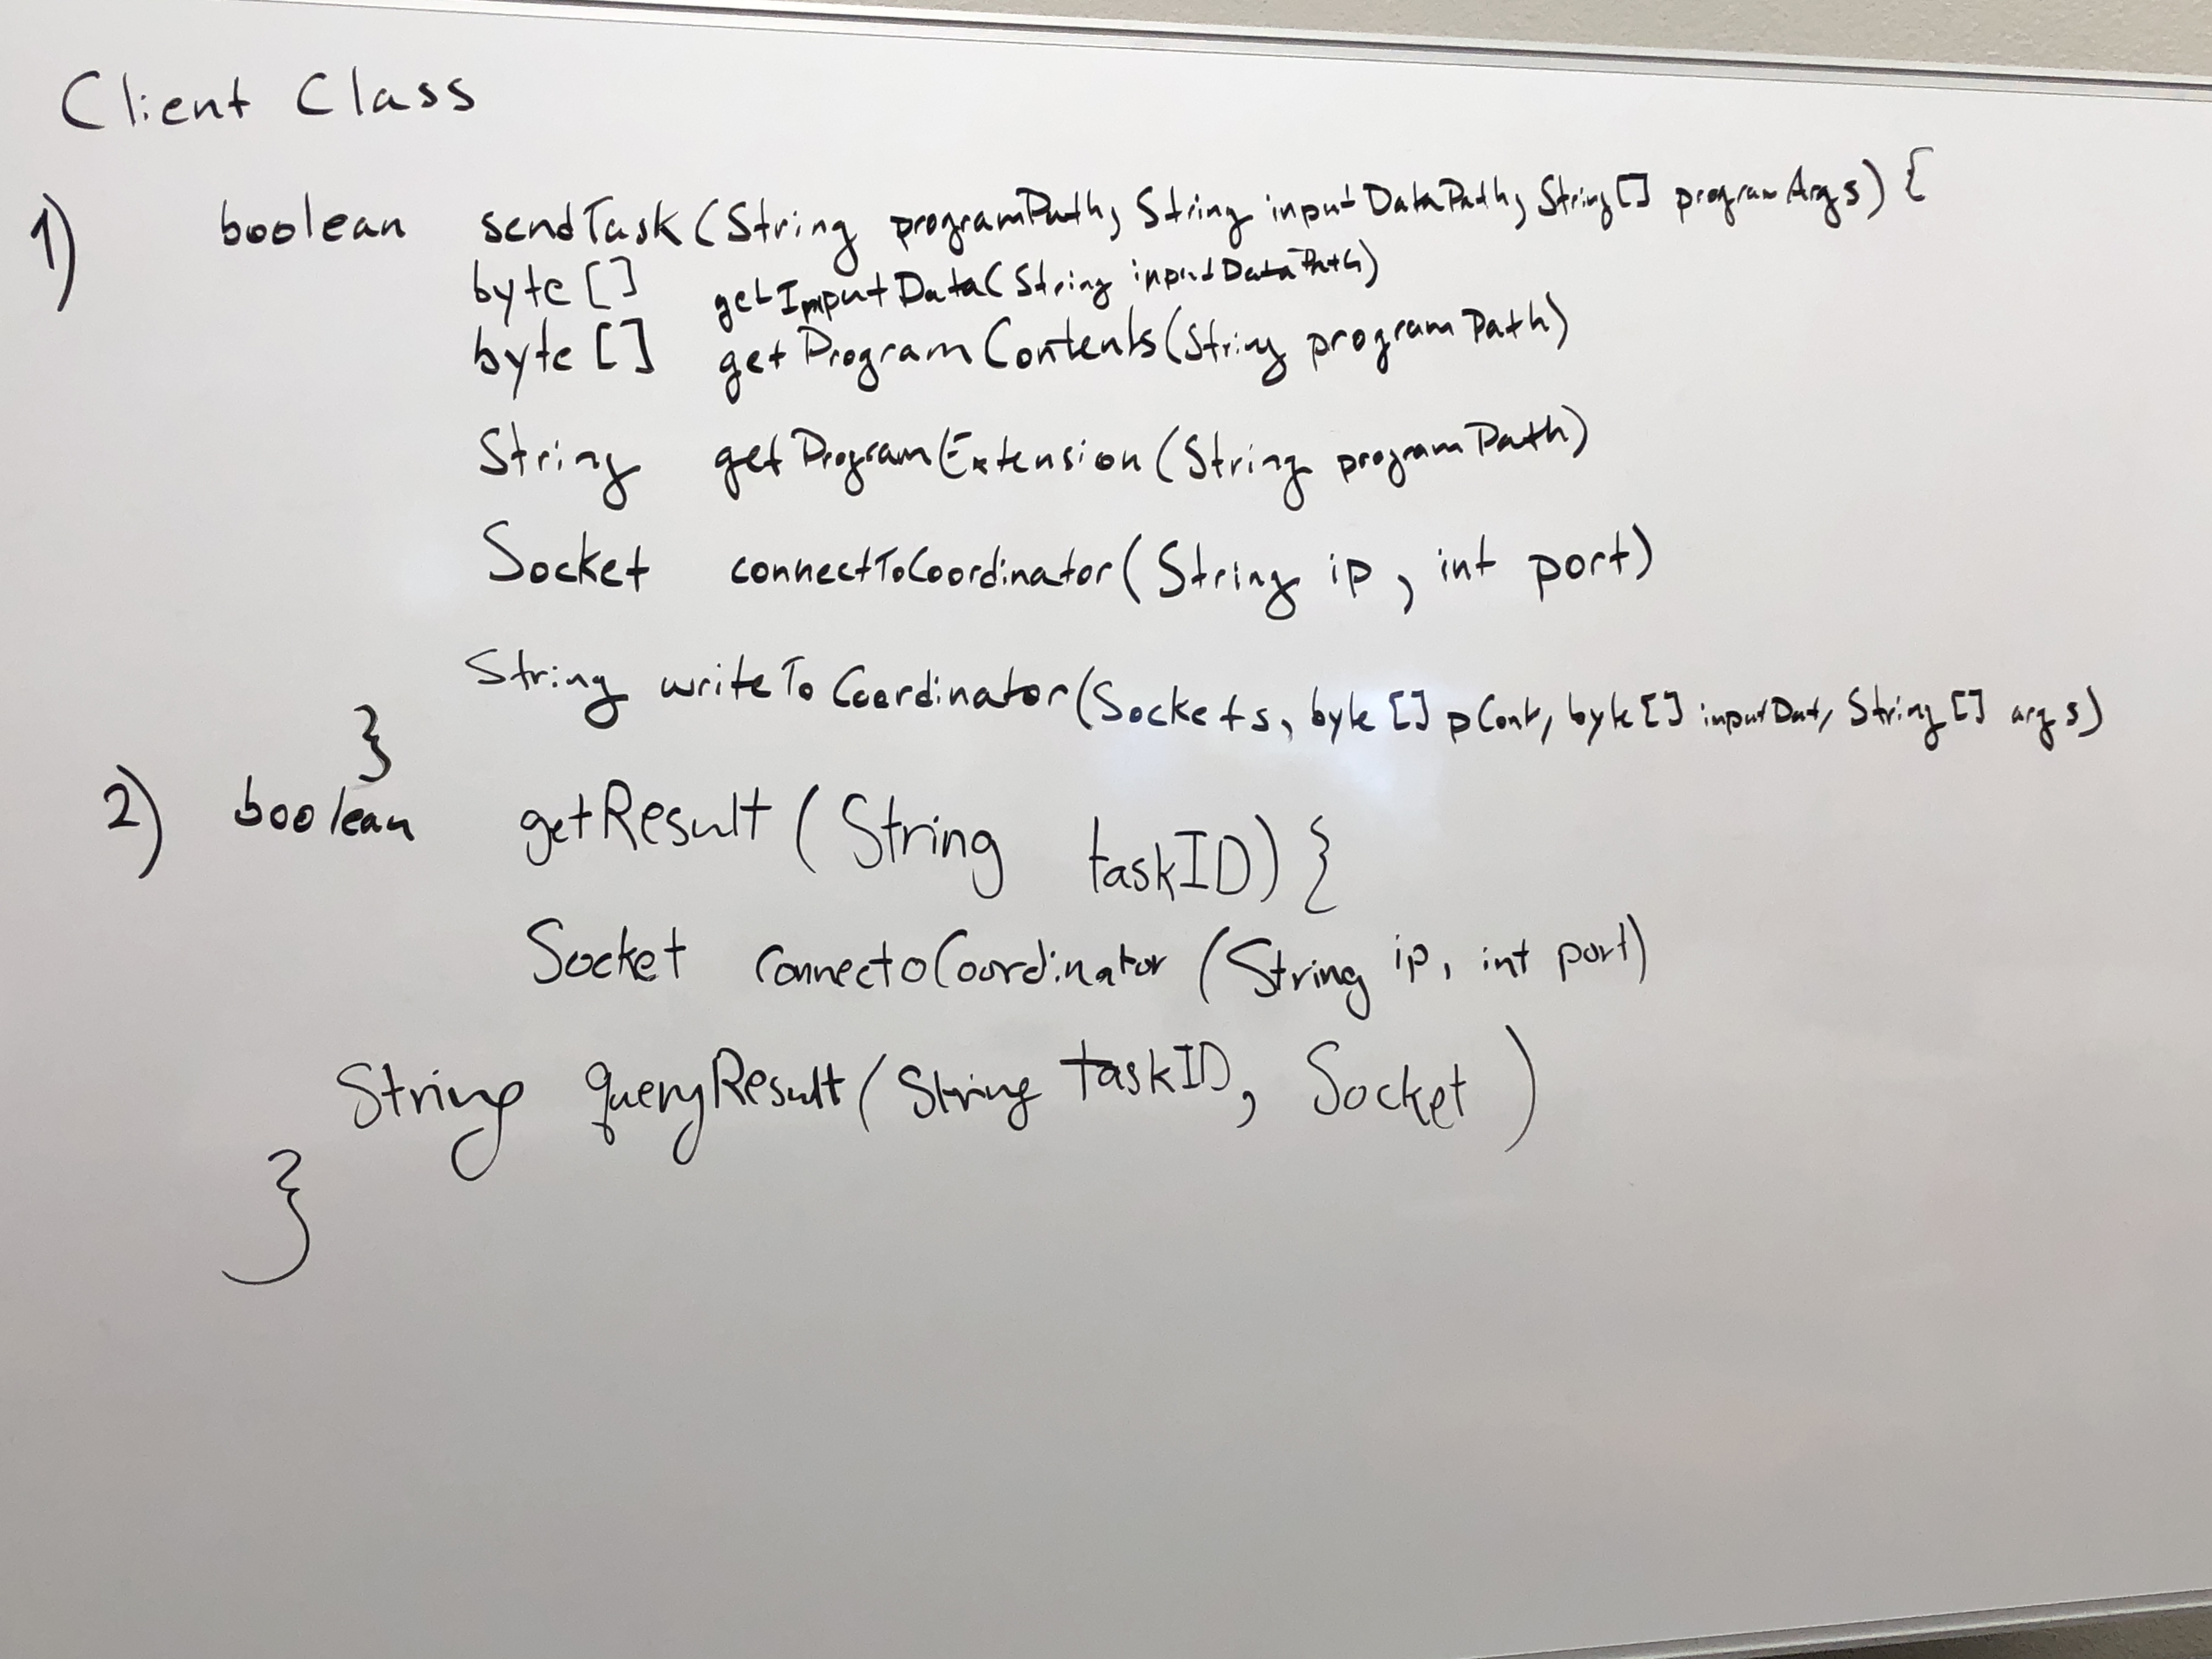 Client Class
1) boolean sendTask(String programPath, String inputDataPath, String[] programArgs) {
byte[] getInputData(String inputDataPath)
byte[] getProgramContents(String programPath)
String getProgramExtension(String programPath)
Socket connectToCoordinator(String ip, int port)
String writeToCoordinator(Socket s, byte[] pCont, byte[] inputDat, String[] args)
}
2) boolean getResult(String taskID) {
Socket connectoCoordinator (String ip, int port)
String queryResult(String taskID, Socket )
}